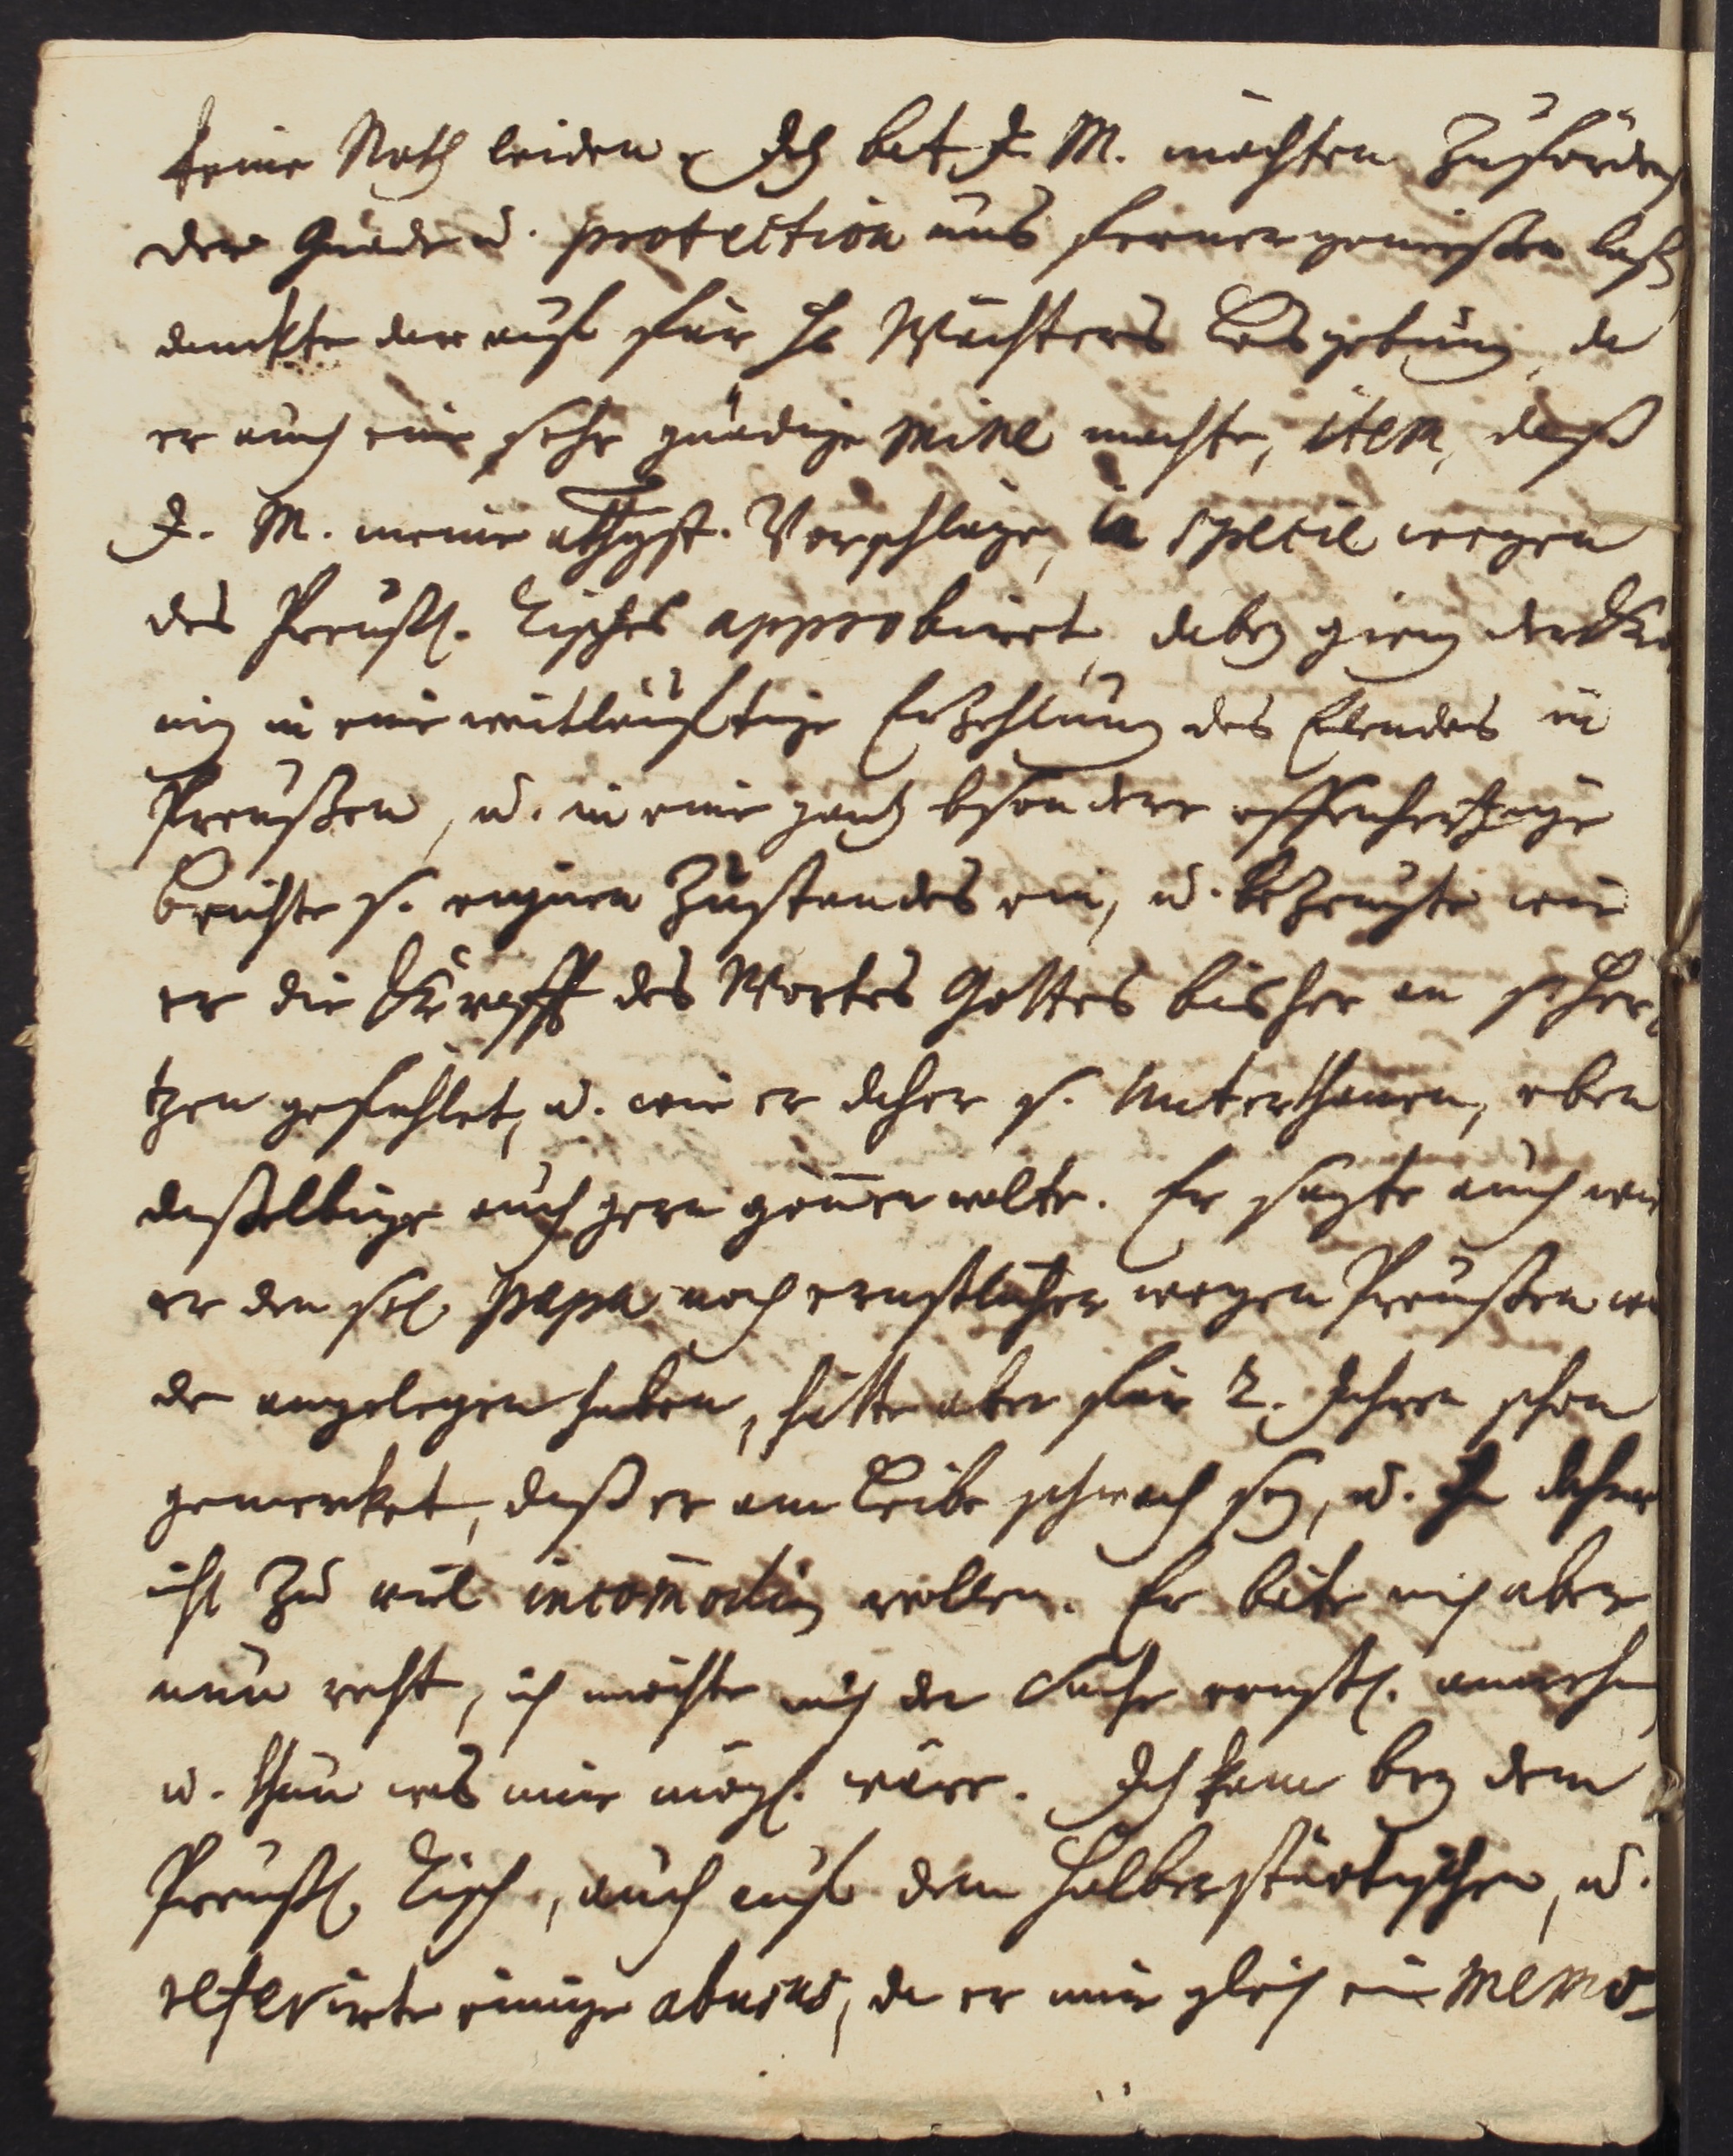 keine Noth leiden. Ich bat I. M. möchten zuförders
der Gnade u. protection uns ferner genießen laß
danckte darauf für H. Wächters Losgebung, da
er auch eine sehr gnädige mine machte, item, daß
I. M. meine Vorschläge, in specie wegen
des Preußl. Tisches approbiret, dabey gieng der Kö
nig in eine weitläufftige Erzehlung des Elendes in
Preußen, u. in eine gantz besondere offenhertzige
Beichte s. eigenen Zustandes ein, u. bezeugte wie
er die Krafft des Wortes Gottes bisher an s. Her
tzen gefühlet, u. wie er daher s. Unterthanen, eben
daßelbige auch gern gönnen wolte. Er sagte auch wie
er den sel. Papa noch ernstlicher wegen Preußen wü
de angelegen haben, hätte aber für 2. Jahren schon
gemercket, daß er am Leibe schwach sey, u. ihn daher
nicht zu viel incommodiren wollen. Er bäte mich aber
nun recht, ich möchte mich der Sache ernstl. annehmen
u. thun was mir mögl. wäre. Ich kam bey dem
Preußl. Tisch, auch auf den Halberstädtischen, u.
referirte einige abusus, da er mir gleich ein Memo-